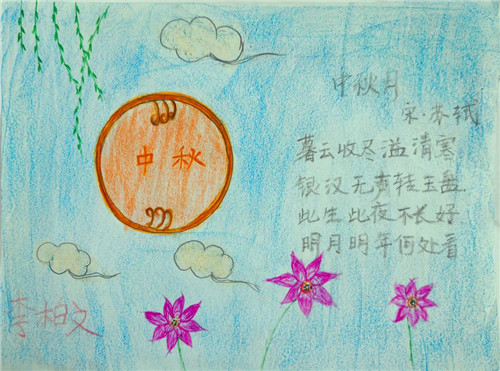 中秋月
宋·苏轼
暮云收尽溢清寒
银汉无声转玉盘
此生此夜不长好
明月明年何处看
中秋
李柏文